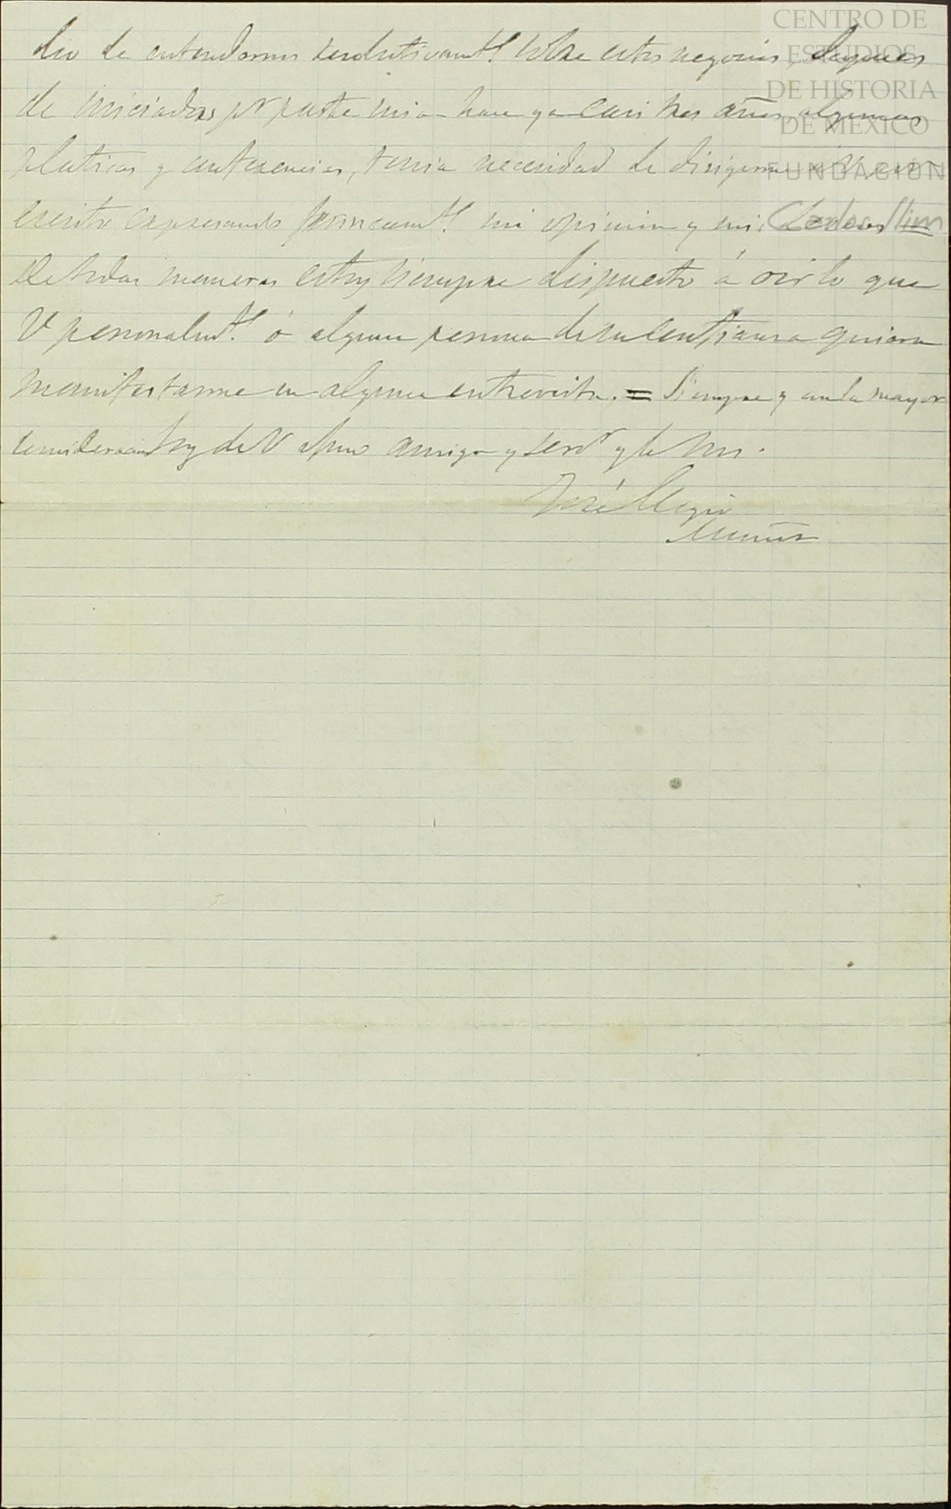 CENTRO DE
ESTUDIOS
DE HISTORIA
DE MÉXICO
FUNDACIÓN
Carlos Slim
dio de entendernos resolutivamte. sobre estos negocios, despues
de iniciadas pr parte mia hace ya casi tres años algunas
platicas y conferencias, tenia necesidad de dirigirme á V. por
escrito expresando francamte. mi opinion y mis deseos =
De todas maneras estoy siempre dispuesto á oir lo que
V personalmte. ó alguna persona de su confianza quiera
manifestarme en alguna entrevista. = Siempre y con la mayor
consideracion soy de V afmo amigo y servr q b s m.
José Maria